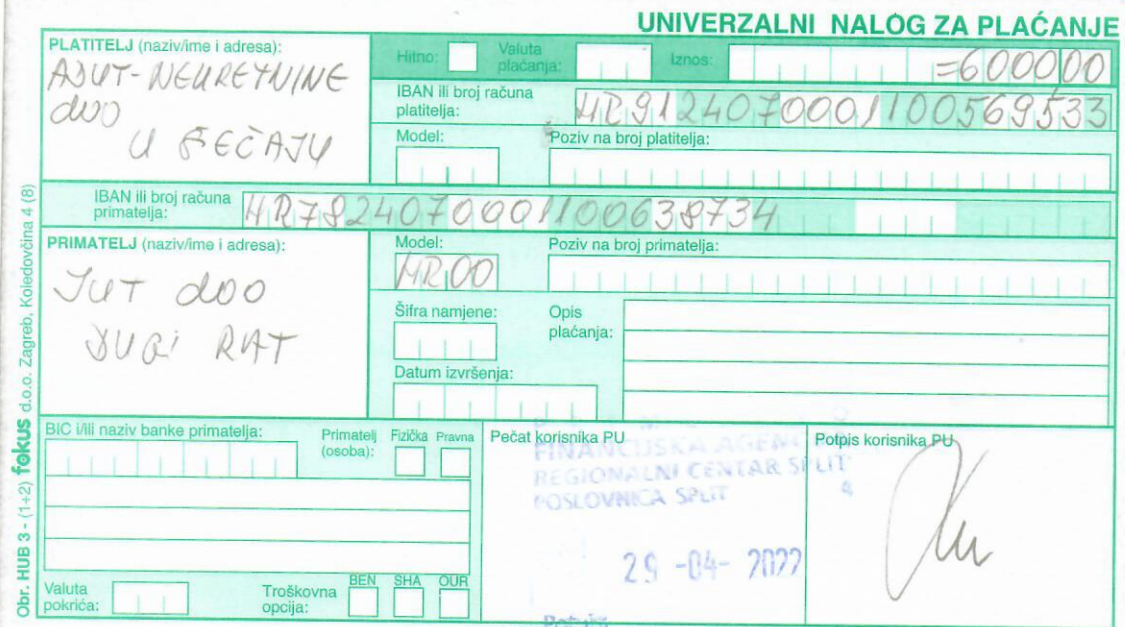 UNIVERZALNI NALOG ZA PLAĆANJE
PLATITELJ (naziv/ime i adresa):
ADUT-NEKRETNINE
doo
U STEČAJU
Hitno:
Valuta plaćanja:
Iznos:
=600000
IBAN ili broj računa platitelja:
HR9124070001100569533
Model:
Poziv na broj platitelja:
IBAN ili broj računa primatelja:
HR7824070001100638734
PRIMATELJ (naziv/ime i adresa):
JUT doo
DUGI RAT
Model:
HR00
Poziv na broj primatelja:
Šifra namjene:
Opis plaćanja:
Datum izvršenja:
BIC i/ili naziv banke primatelja:
Primatelj (osoba):
Fizička
Pravna
Pečat korisnika PU
FINANCIJSKA AGEN
REGIONALNI CENTAR SPLIT
POSLOVNICA SPLIT
4
29 -04- 2022
Potpis korisnika PU
Valuta pokrića:
Troškovna opcija:
BEN
SHA
OUR
Obr. HUB 3 - (1+2) fokus d.o.o. Zagreb, Koledovčina 4 (8)